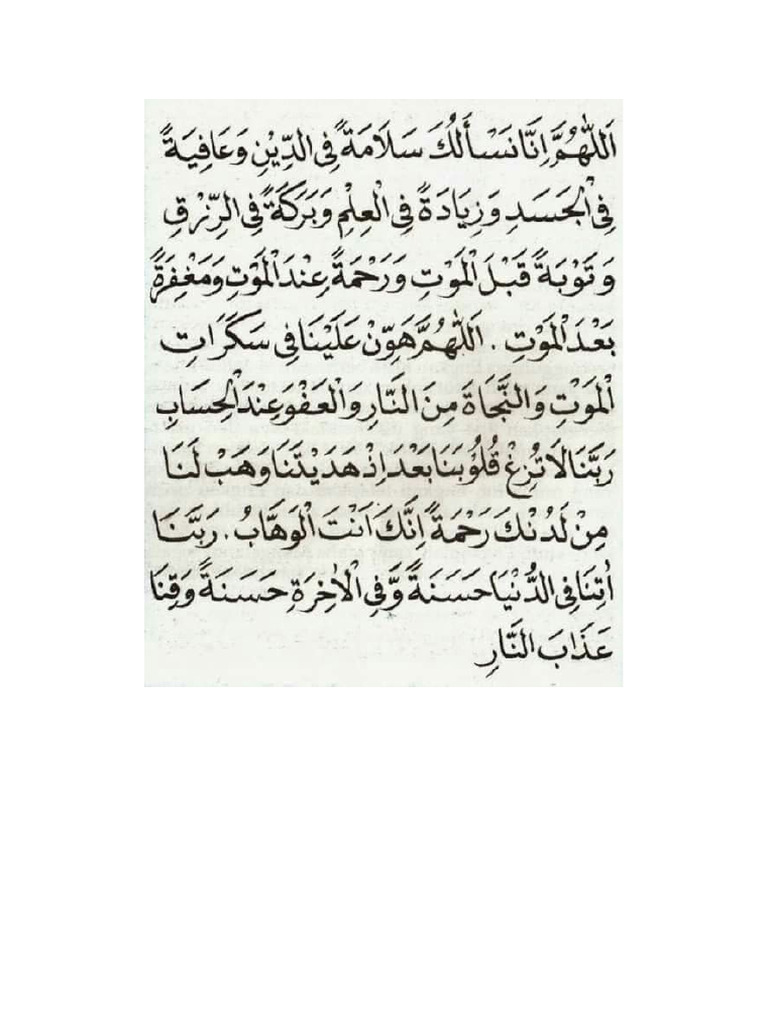 اَللّٰهُمَّ اِنَّا نَسْأَلُكَ سَلَامَةً فِى الدِّيْنِ وَعَافِيَةً
فِى الْجَسَدِ وَزِيَادَةً فِى الْعِلْمِ وَبَرَكَةً فِى الرِّزْقِ
وَتَوْبَةً قَبْلَ الْمَوْتِ وَرَحْمَةً عِنْدَ الْمَوْتِ وَمَغْفِرَةً
بَعْدَ الْمَوْتِ . اَللّٰهُمَّ هَوِّنْ عَلَيْنَا فِى سَكَرَاتِ
الْمَوْتِ وَالنَّجَاةَ مِنَ النَّارِ وَالْعَفْوَ عِنْدَ الْحِسَابِ
رَبَّنَا لَا تُزِغْ قُلُوْبَنَا بَعْدَ اِذْ هَدَيْتَنَا وَهَبْ لَنَا
مِنْ لَدُنْكَ رَحْمَةً اِنَّكَ اَنْتَ الْوَهَّابُ . رَبَّنَا
اٰتِنَا فِى الدُّنْيَا حَسَنَةً وَّفِى الْاٰخِرَةِ حَسَنَةً وَقِنَا
عَذَابَ النَّارِ